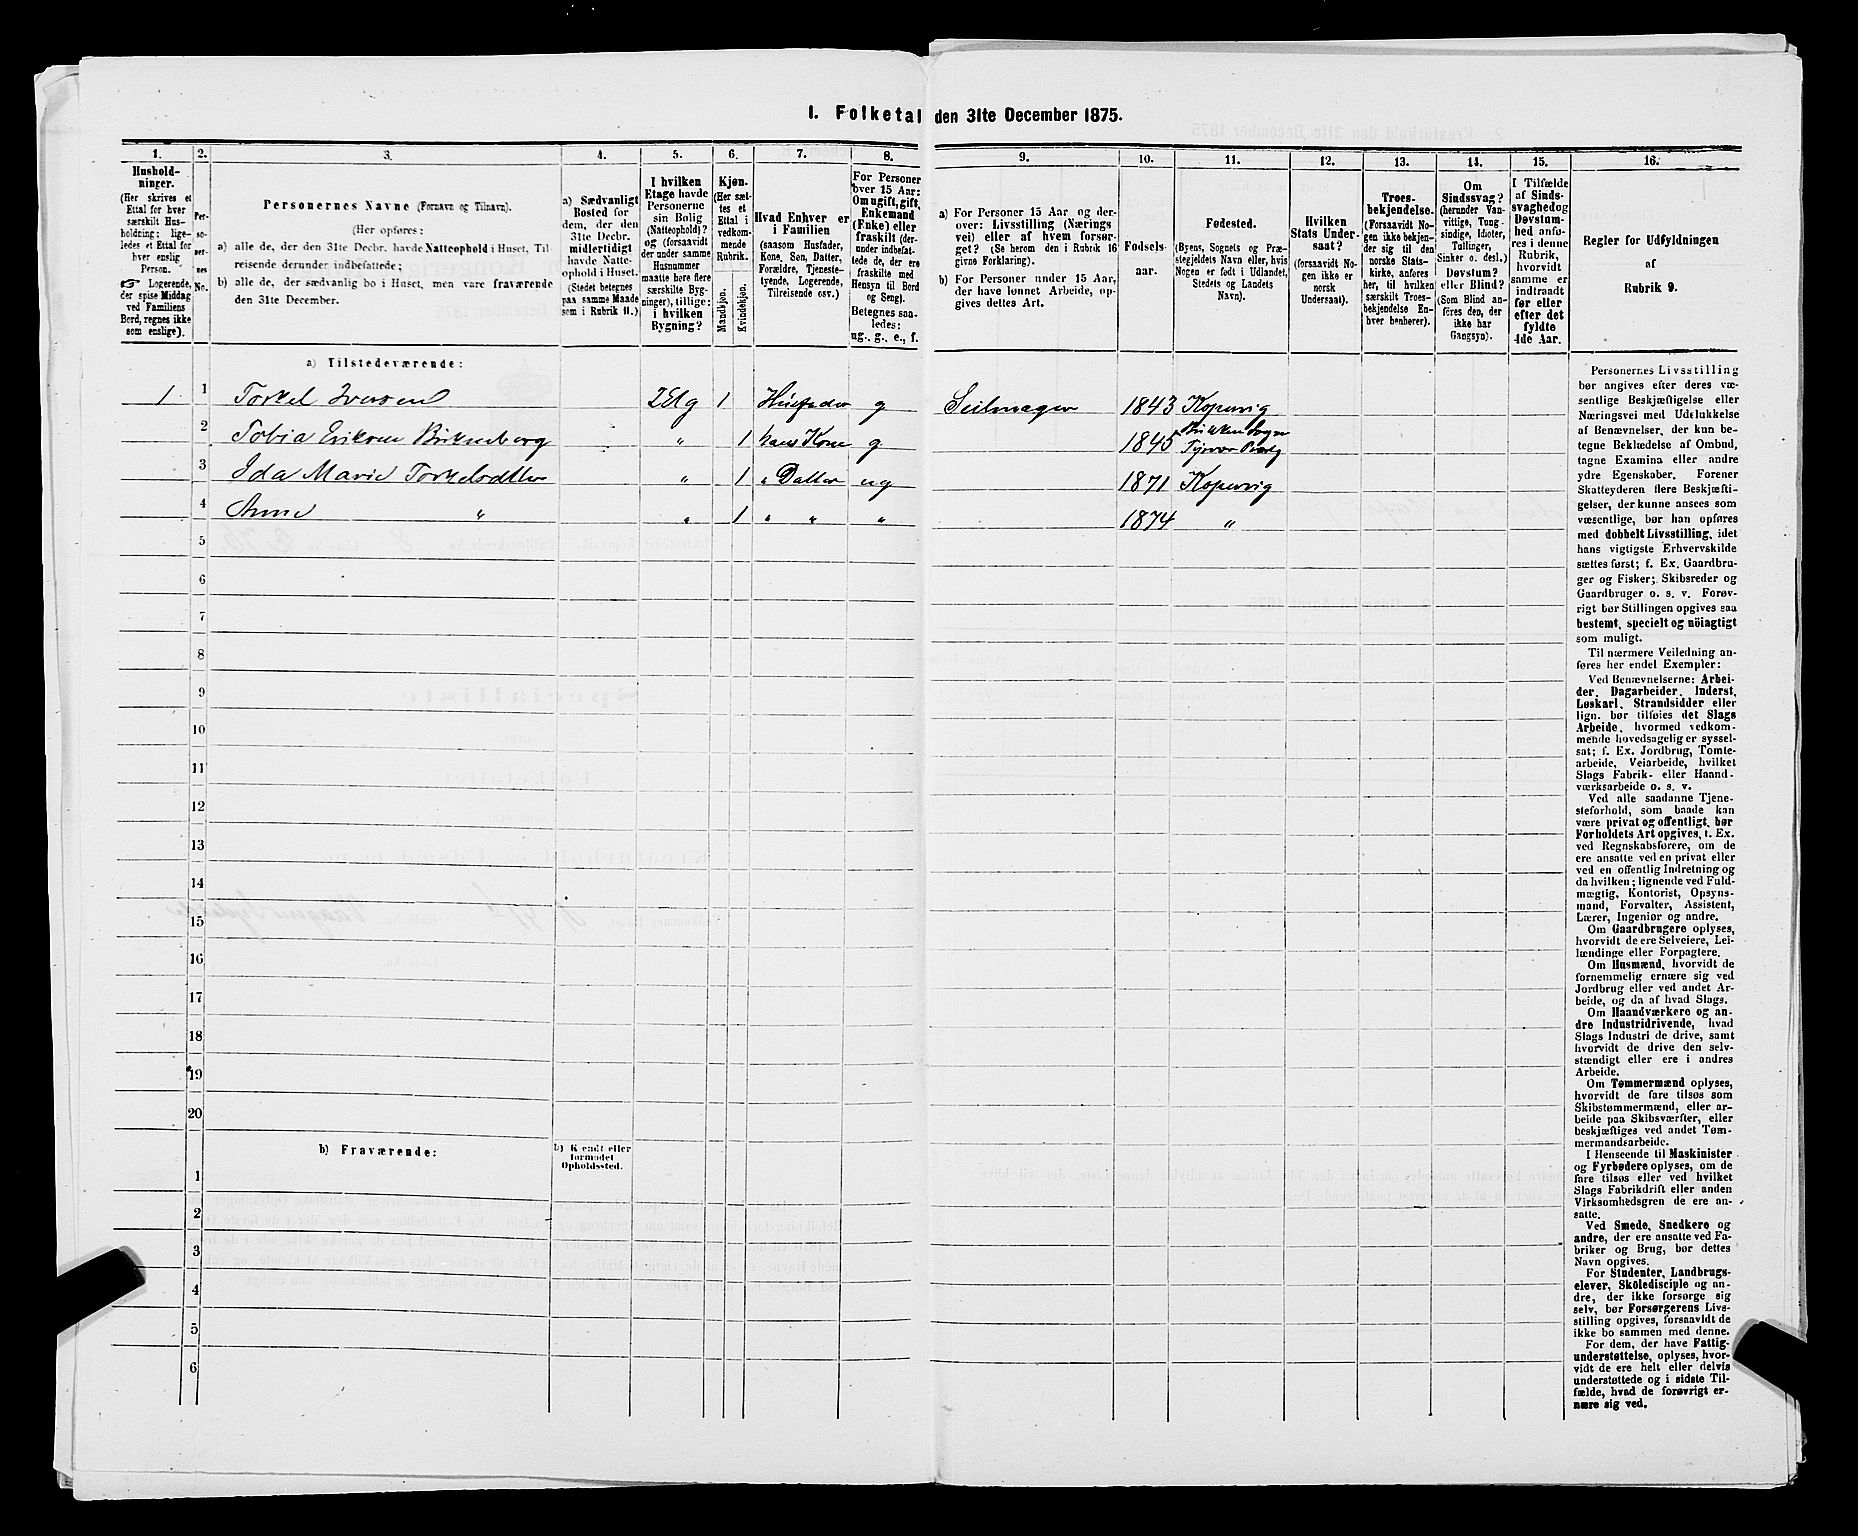 I. Folketal den 31te December 1875.
1. 2. 3. 4. 5. 6. 7. 8. 9. 10. 11. 12. 13. 14. 15. 16.
Hushold-
ninger.
(Her skrives et
Ettal for hver
særskilt Hus-
holdning; lige-
ledes et Ettal for
hver enslig
Person.
☞ Logerende,
der spise Middag
ved Familiens
Bord, regnes ikke
som enslige).
Per-
so-
ner-
nes
No.
Personernes Navne (Fornavn og Tilnavn).
(Her opføres:
a) alle de, der den 31te Decbr. havde Natteophold i Huset, Til-
reisende derunder indbefattede;
b) alle de, der sædvanlig bo i Huset, men vare fraværende
den 31te December.
a) Sædvanligt
Bosted for
dem, der den
31te Decbr.
midlertidigt
havde Natte-
ophold i Huset.
(Stedet betegnes
paa samme Maade
som i Rubrik 11.)
I hvilken
Etage havde
Personerne
sin Bolig
(Natteophold)?
og (forsaavidt
der under samme
Husnummer
maatte høre flere
særskilte Byg-
ninger), tillige:
i hvilken
Bygning?
Kjøn.
(Her sæt-
tes et
Ettal i
vedkom-
mende
Rubrik.
Mandkjøn.
Kvindekjøn.
Hvad Enhver er
i Familien
(saasom Husfader,
Kone, Søn, Datter,
Forældre, Tjeneste-
tyende, Logerende,
Tilreisende osv.)
For Personer
over 15 Aar:
Om ugift, gift,
Enkemand
(Enke) eller
fraskilt (der-
under indbefat-
tede de, der ere
fraskilte med
Hensyn til Bord
og Seng).
Betegnes saa-
ledes:
ug., g., e., f.
a) For Personer 15 Aar og der-
over: Livsstilling (Nærings
vei) eller af hvem forsør-
get? (Se herom den i Rubrik 16
givne Forklaring).
b) For Personer under 15 Aar,
der have lønnet Arbeide, op-
gives dettes Art.
Fødsels-
aar.
Fødested.
(Byens, Sognets og Præ-
stegjeldets Navn eller, hvis
Nogen er født i Udlandet,
Stedets og Landets
Navn).
Hvilken
Stats Under-
saat?
(forsaavidt No-
gen ikke er
norsk
Undersaat).
Troes-
bekjendelse.
(Forsaavidt No-
gen ikke bekjen-
der sig til den
norske Stats-
kirke, anføres
her, til hvilken
særskilt Troes-
bekjendelse En-
hver henhører).
Om
Sindssvag?
(herunder Van-
vittige, Tung-
sindige, Idioter,
Tullinger,
Sinker o. desl.)
Døvstum?
eller Blind?
(Som Blind an-
føres den, der
ikke har
Gangsyn).
I Tilfælde
af Sinds-
svaghed og
Døvstum-
hed anfø-
res i denne
Rubrik,
hvorvidt
samme er
indtraadt
før eller
efter det
fyldte
4de Aar.
Regler for Udfyldningen
af
Rubrik 9.
a) Tilstedeværende:
1 1 Torkel Iversen 2 Etg 1 Husfader g Seilmager 1843 Kopervig
2 Tobia Eriksen Birkenberg " 1 hans Kone g 1845 Sogn Tysvær
3 Ida Marie Torkelsdtter " 1 " Datter ug 1871 Kopervig
4 Anne " " 1 " " " 1874 "
5
6
7
8
9
10
11
12
13
14
15
16
17
18
19
20
b) Fraværende:
b) Kjendt eller
formodet
Opholdssted.
1
2
3
4
5
6
Personernes Livsstilling
bør angives efter deres væ-
sentlige Beskjæftigelse eller
Næringsvei med Udelukkelse
af Benævnelser, der kun be-
tegne Beklædelse af Ombud,
tagne Examina eller andre
ydre Egenskaber. Forener
Skatteyderen flere Beskjæfti-
gelser, der kunne ansees som
væsentlige, bør han opføres
med dobbelt Livsstilling, idet
hans vigtigste Erhvervskilde
sættes først; f. Ex. Gaardbru-
ger og Fisker; Skibsreder og
Gaardbruger o. s. v. Forøv-
rigt bør Stillingen opgives saa
bestemt, specielt og nöiagtigt
som muligt.
Til nærmere Veiledning an-
føres her endel Exempler:
Ved Benævnelserne: Arbei-
der, Dagarbeider, Inderst,
Løskarl, Strandsidder eller
lign. bør tilføies det Slags
Arbeide, hvormed vedkom-
mende hovedsagelig er syssel-
sat; f. Ex. Jordbrug, Tomte-
arbeide, Veiarbeide, hvilket
Slags Fabrik- eller Haand-
værksarbeide o. s. v.
Ved alle saadanne Tjene-
steforhold, som baade kan
være privat og offentligt, bør
Forholdets Art opgives, f. Ex.
ved Regnskabsførere, om de
ere ansatte ved en privat eller
ved en offentlig Indretning og
da hvilken; lignende ved Fuld-
mægtig, Kontorist, Opsyns-
mand, Forvalter, Assistent,
Lærer, Ingeniør og andre.
Om Gaardbrugere oplyses,
hvorvidt de ere Selveiere, Lei-
lændinge eller Forpagtere.
Om Husmænd, hvorvidt de
fornemmelig ernære sig ved
Jordbrug eller ved andet Ar-
beide, og da af hvad Slags.
Om Haandværkere og an-
dre Industridrivende, hvad
Slags Industri de drive, samt
hvorvidt de drive den selv-
stændigt eller ere i andres
Arbeide.
Om Tømmermænd oplyses,
hvorvidt de fare tilsøs som
Skibstømmermænd, eller ar-
beide paa Skibsværfter, eller
beskjæftiges ved andet Tøm-
mermandsarbeide.
I Henseende til Maskinister
og Fyrbødere oplyses, om de
fare tilsøs eller ved hvilket
Slags Fabrikdrift eller anden
Virksomhedsgren de ere an-
satte.
Ved Smede, Snedkere og
andre, der ere ansatte ved Fa-
briker og Brug, bør dettes
Navn opgives.
For Studenter, Landbrugs-
elever, Skoledisciple og an-
dre, der ikke forsørge sig
selv, bør Forsørgerens Livs-
stilling opgives, forsaavidt de
ikke bo sammen med denne.
For dem, der have Fattig-
understøttelse, oplyses, hvor-
vidt de ere helt eller delvis
understøttede og i sidste Til-
fælde, hvad de forøvrigt er-
nære sig ved.